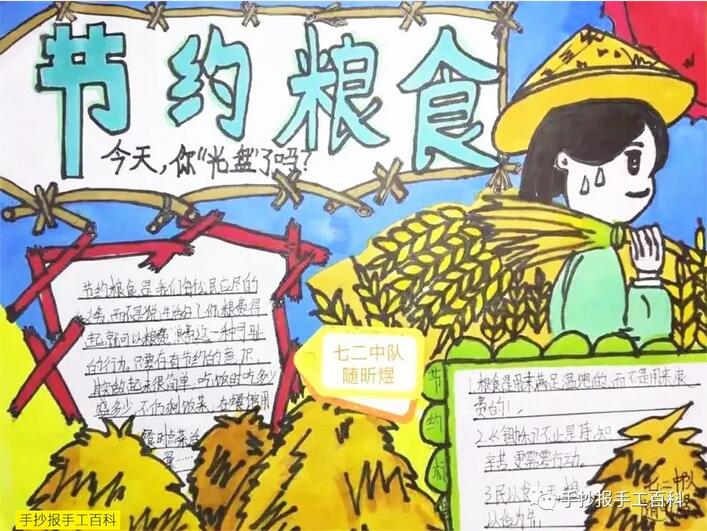 节约粮食
今天,你“光盘”了吗?
节约粮食是我们每公民应尽的
义务,而不是说生活好了,你浪费得
起就可以浪费,浪费这一种可耻
的行为,只要存有节约的意识,
其实做起来很简单:吃饭时吃多少
盛多少,不仍剩饭菜,在餐馆用
餐时点菜
七二中队
随昕煜
节约粮
1.粮食是用来满足温饱的,而不是用来浪
费的!
2.不止是
辛苦,更需要行动。
3.民以食天
七二中队
手抄报手工百科
手抄报手工百科